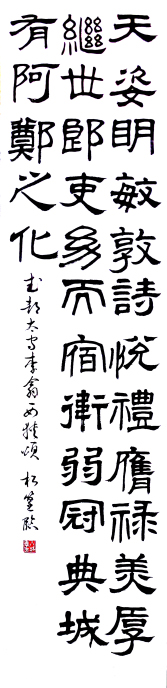 天姿明敏敦詩悅禮膺祿美厚
繼世郎吏幼而宿衛弱冠典城
有阿鄭之化
武都太守李翕西狹頌 松臨